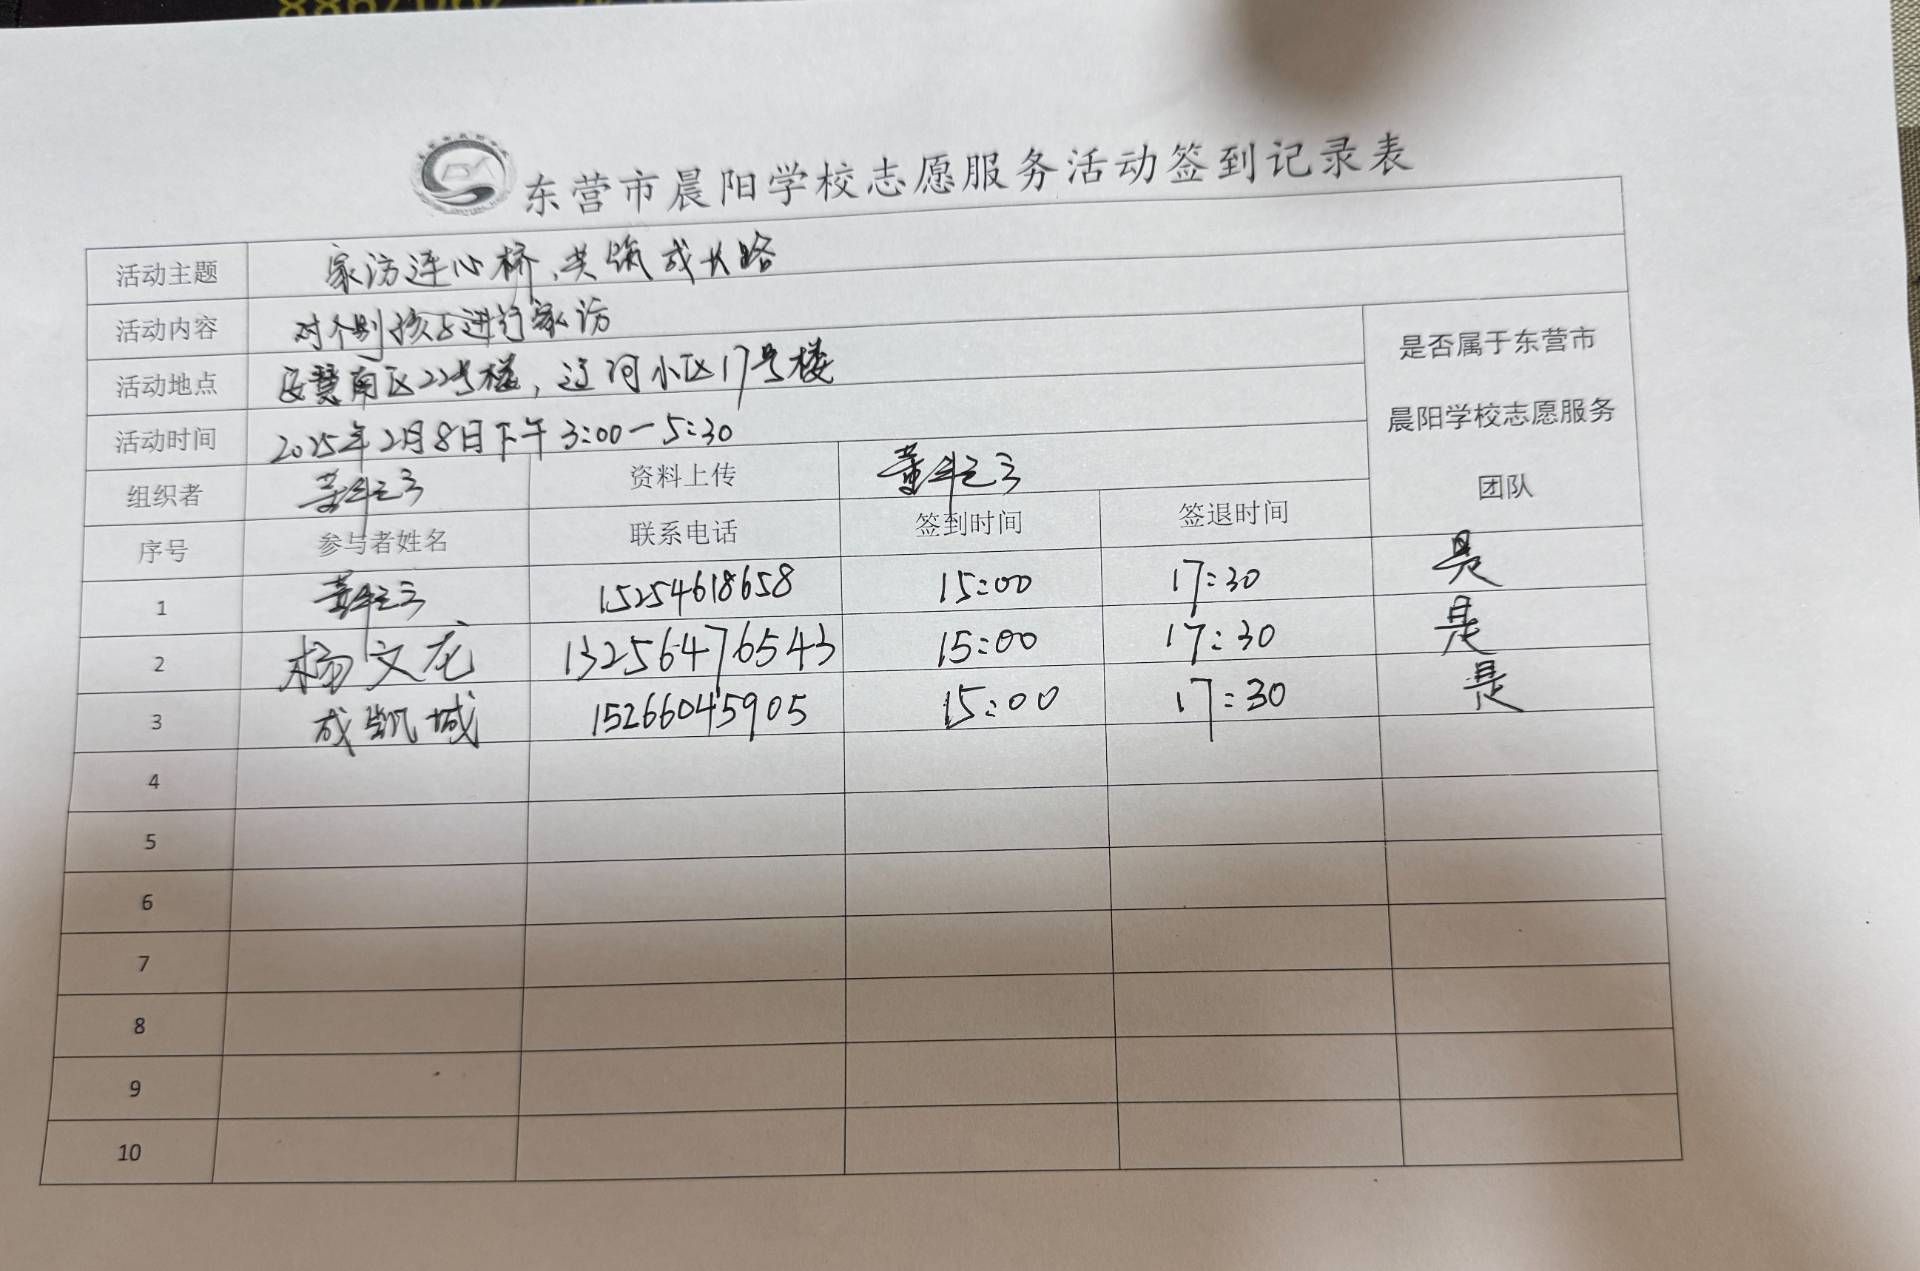 东营市晨阳学校志愿服务活动签到记录表
活动主题 家访连心桥,共筑成长路
活动内容 对个别孩子进行家访
活动地点 安慧南区22号楼,辽河小区17号楼
活动时间 2025年2月8日下午 3:00-5:30
是否属于东营市
晨阳学校志愿服务
团队
组织者 资料上传
序号 参与者姓名 联系电话 签到时间 签退时间
1 15254618658 15:00 17:30 是
2 杨文龙 13256476543 15:00 17:30 是
3 成凯城 15266045905 15:00 17:30 是
4
5
6
7
8
9
10